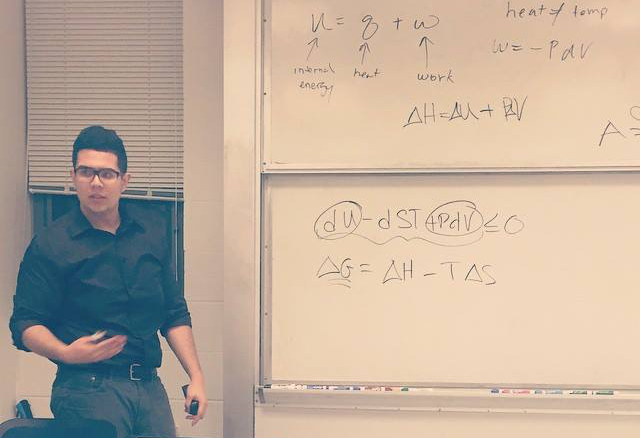 U = q + w
internal energy
heat
work
heat ≠ temp
w = - P dV
ΔH = ΔU + PΔV
A =
dU - dST + PdV ≤ 0
ΔG = ΔH - TΔS